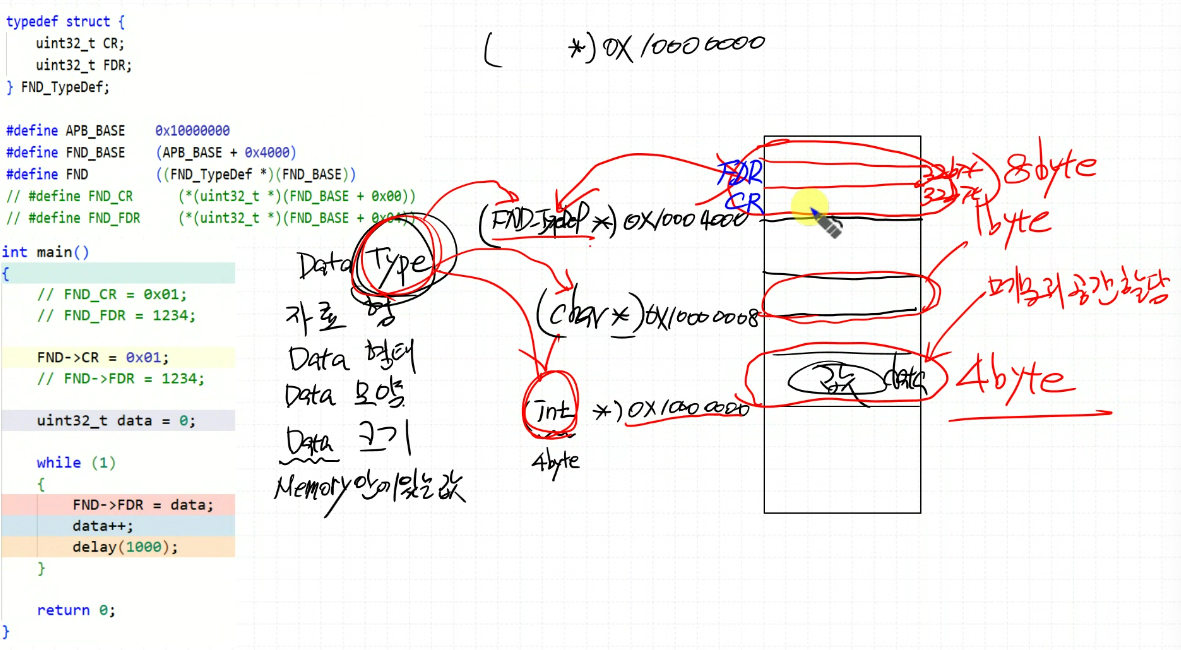 typedef struct {
uint32_t CR;
uint32_t FDR;
} FND_TypeDef;
#define APB_BASE 0x10000000
#define FND_BASE (APB_BASE + 0x4000)
#define FND ((FND_TypeDef *)(FND_BASE))
// #define FND_CR (*(uint32_t *)(FND_BASE + 0x00))
// #define FND_FDR (*(uint32_t *)(FND_BASE + 0x04))
int main()
{
// FND_CR = 0x01;
// FND_FDR = 1234;
FND->CR = 0x01;
// FND->FDR = 1234;
uint32_t data = 0;
while (1)
{
FND->FDR = data;
data++;
delay(1000);
}
return 0;
}
( *) 0X10000000
Data Type
자료 형
Data 형태
Data 모양
Data 크기
Memory 안에 있는 값
(FND_TypeDef *) 0X10004000
(char *) 0X10000008
int *) 0X1000 0000
4byte
FDR
CR
8byte
1byte
메모리 공간 할당
값 data
4byte